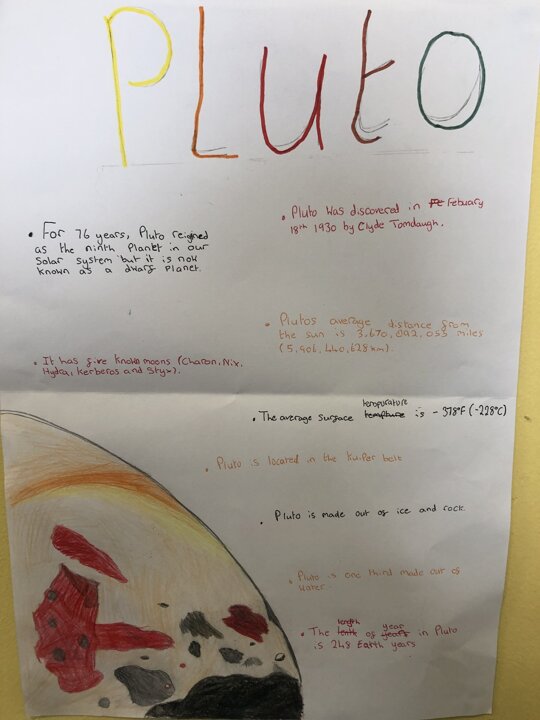 Pluto
• For 76 years, Pluto reigned
as the ninth Planet in our
Solar system but it is now
known as a dwarf planet.
• Pluto was discovered in Febuary
18th 1930 by Clyde Tomdaugh.
• Plutos average distance from
the sun is 3,670,092,055 miles
(5,906,440,628km).
• It has five known moons (Charon, Nix,
Hydra, Kerberos and Styx).
• The average surface tempurature is -378°F (-228°C)
• Pluto is located in the Kuiper belt
• Pluto is made out of ice and rock.
• Pluto is one third made out of
water.
• The length of year in Pluto
is 248 Earth years